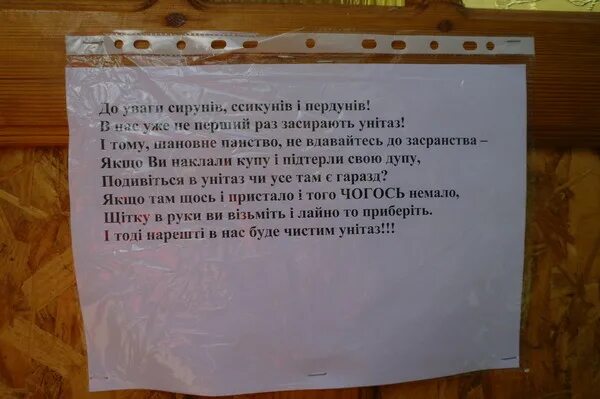 До уваги сирунів, ссикунів і пердунів!
В нас уже не перший раз засирають унітаз!
І тому, шановне панство, не вдавайтесь до засранства –
Якщо Ви наклали купу і підтерли свою дупу,
Подивіться в унітаз чи усе там є гаразд?
Якщо там щось і пристало і того ЧОГОСЬ немало,
Щітку в руки ви візьміть і лайно то приберіть.
І тоді нарешті в нас буде чистим унітаз!!!